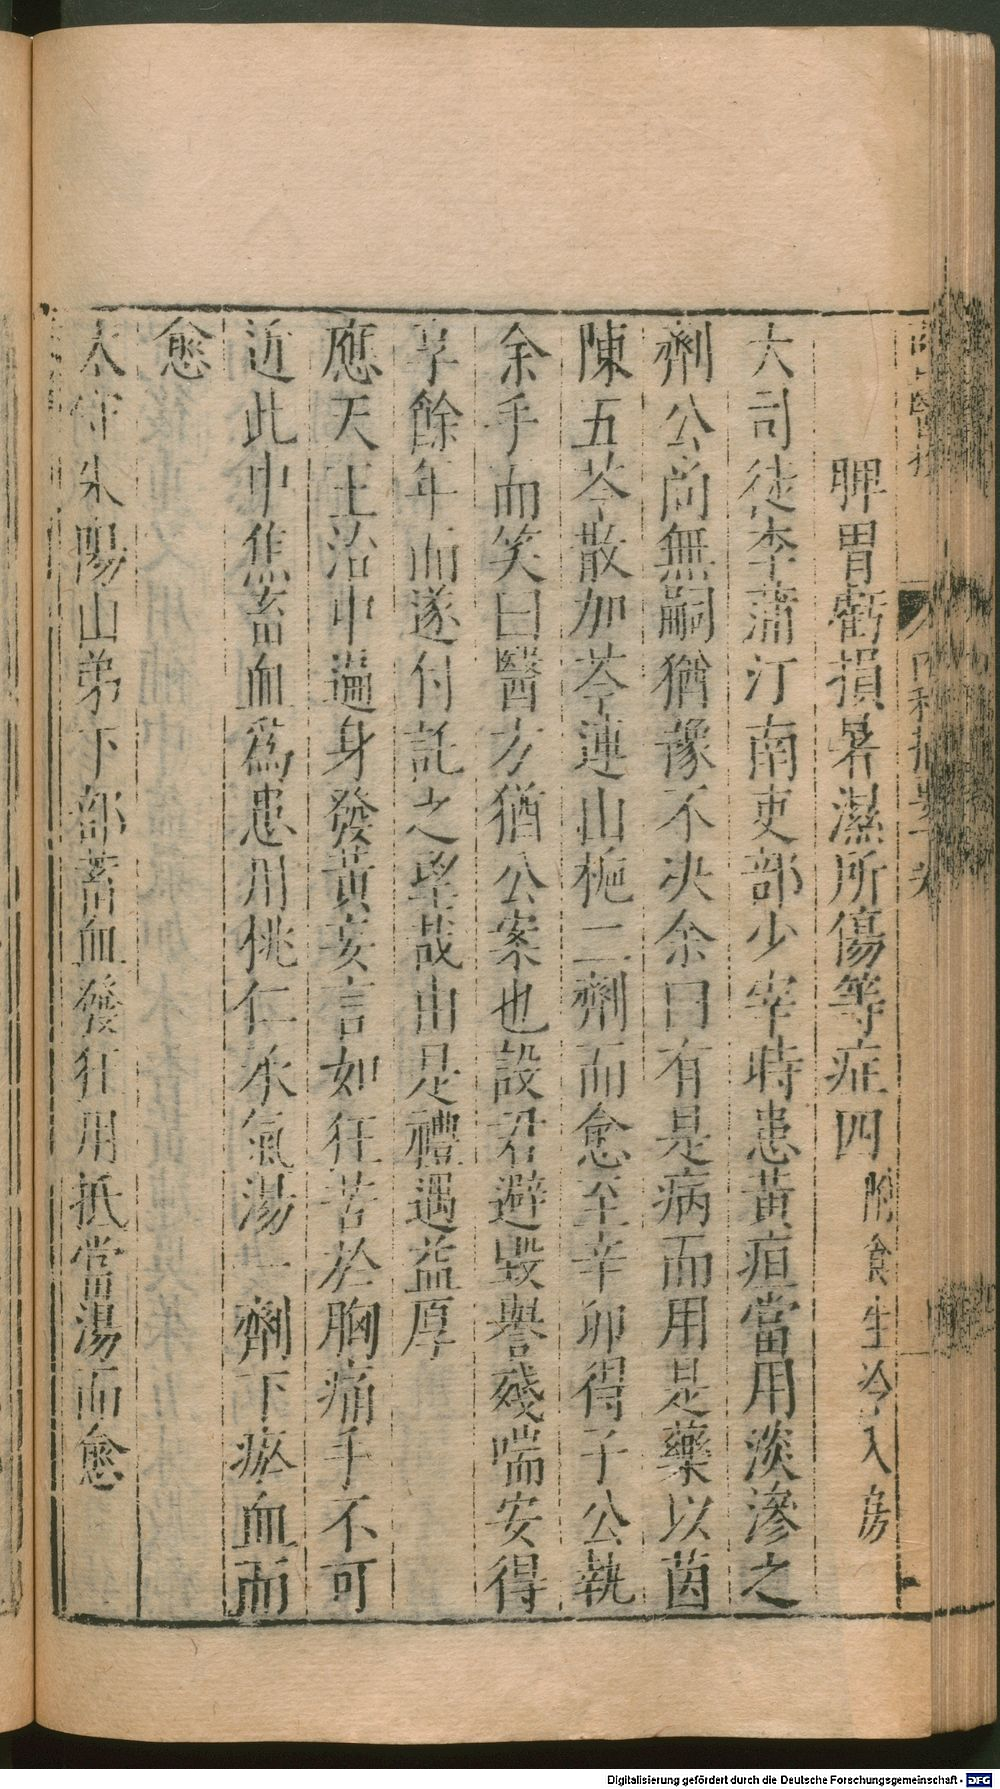 脾胃虧損暑濕所傷等症四 附食生冷入房
大司徒李蒲汀南吏部少宰時患黃疸當用淡滲之
劑公尚無嗣猶豫不决余曰有是病而用是藥以茵
陳五苓散加芩連山梔二劑而愈至辛卯得子公執
余手而笑曰醫方猶公案也設君避毀譽殘喘安得
享餘年而遂付託之望哉由是禮遇益厚
應天王治中遍身發黃妄言如狂苦於胸痛手不可
近此中焦畜血爲患用桃仁承氣湯一劑下瘀血而
愈
太守朱陽山弟下部蓄血發狂用抵當湯而愈
Digitalisierung gefördert durch die Deutsche Forschungsgemeinschaft - DFG